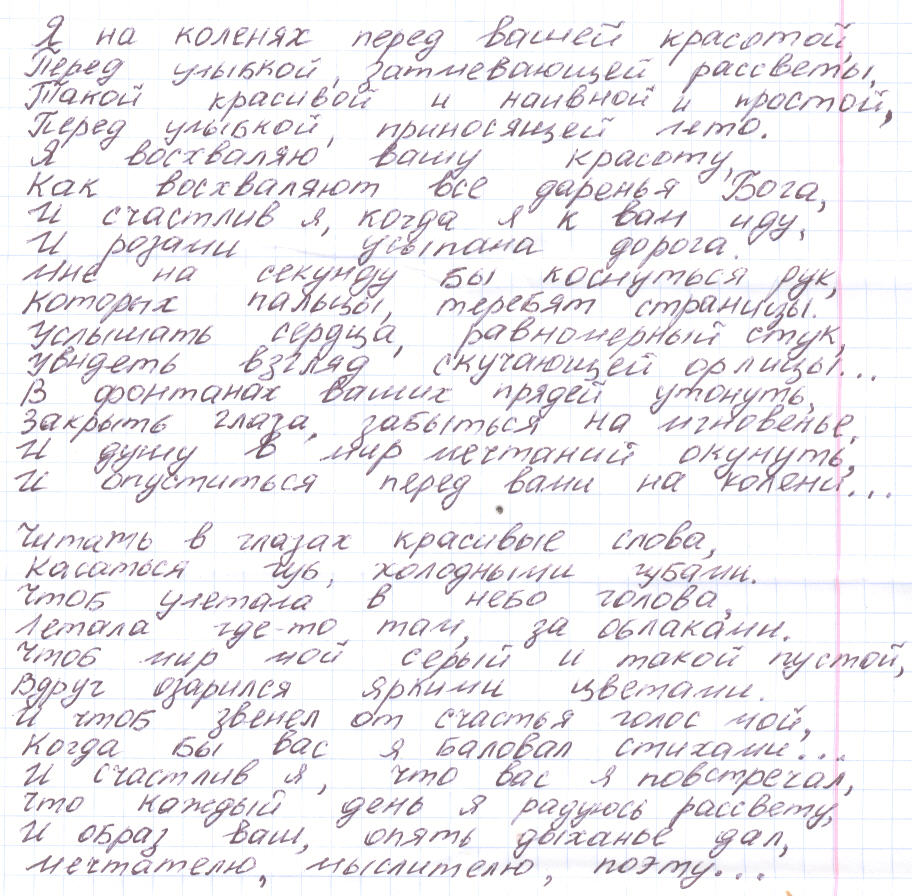 Я на коленях перед вашей красотой,
Перед улыбкой, затмевающей рассветы,
Такой красивой и наивной и простой,
Перед улыбкой, приносящей лето.
Я восхваляю вашу красоту,
Как восхваляют все даренья Бога,
И счастлив я, когда я к вам иду,
И розами усыпана дорога.
Мне на секунду бы коснуться рук,
Которых пальцы, теребят страницы.
Услышать сердца, равномерный стук,
Увидеть взгляд, скучающей орлицы...
В фонтанах ваших прядей утонуть,
Закрыть глаза, забыться на мгновенье.
И душу в мир мечтаний окунуть,
И опуститься перед вами на колени...
Читать в глазах красивые слова,
Касаться губ, холодными губами.
Чтоб улетала в небо голова,
Летала где-то там, за облаками.
Чтоб мир мой серый и такой пустой,
Вдруг озарился яркими цветами.
И чтоб звенел от счастья голос мой,
Когда бы вас я баловал стихами...
И счастлив я, что вас я повстречал,
Что каждый день я радуюсь рассвету,
И образ ваш, опять дыханье дал,
Мечтателю, мыслителю, поэту...